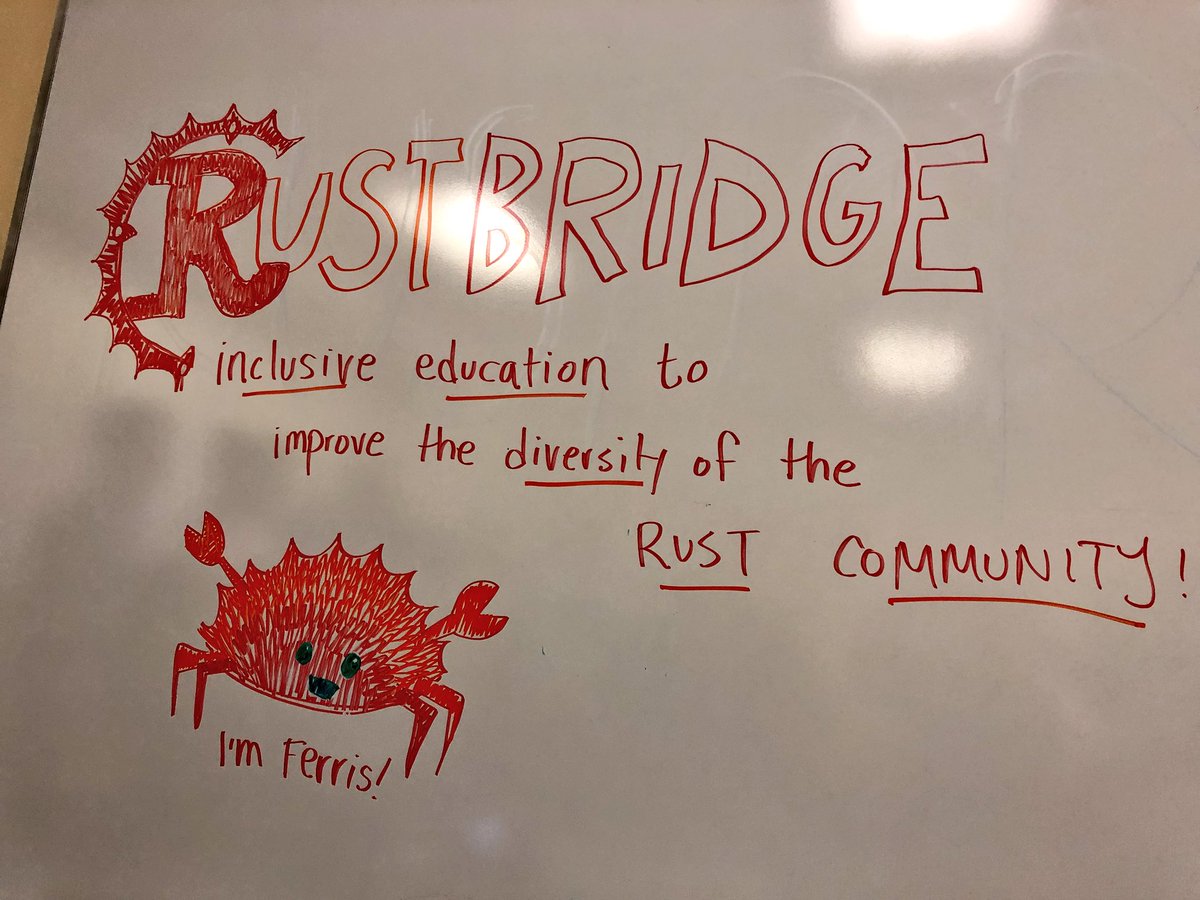 RUSTBRIDGE
inclusive education to
improve the diversity of the
RUST COMMUNITY!
I'm Ferris!